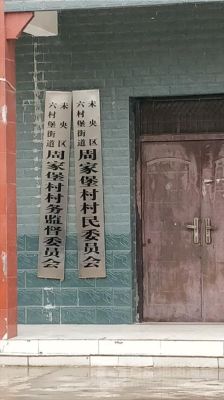 未央区
六村堡街道
周家堡村村民委员会
未央区
六村堡街道
周家堡村村务监督委员会